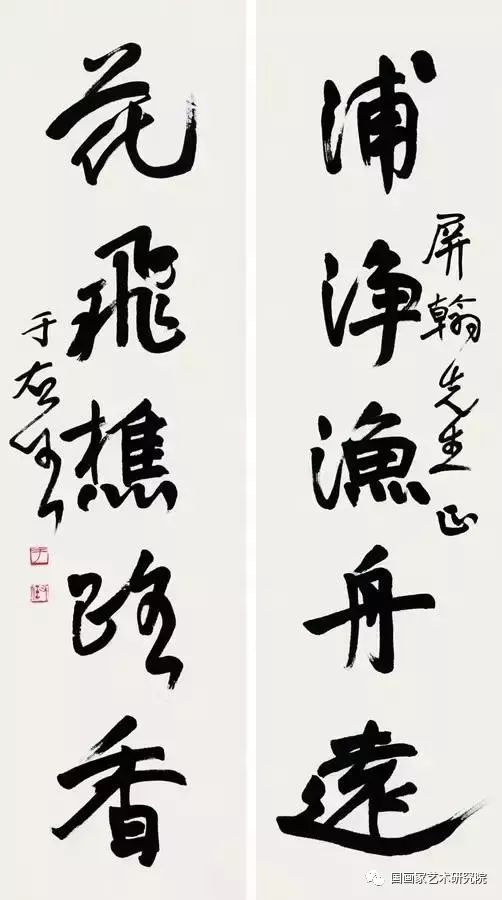 浦淨漁舟遠
屏翰先生正
花飛樵路香
于右任
国画家艺术研究院